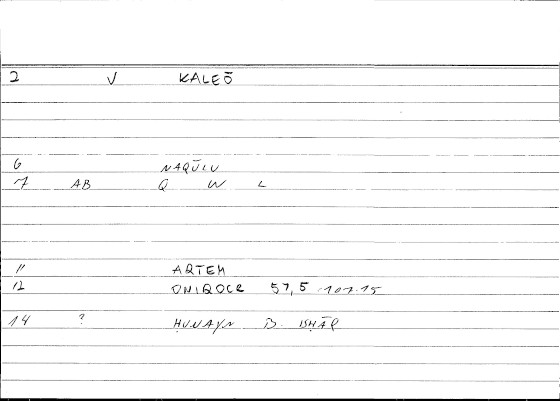 2 V KALEŌ
6 NAQŪLU
7 AB Q W L
11 ARTEM
12 ONIROCR 57,5 107.15
14 ? ḤUNAYN B. ISḤĀQ